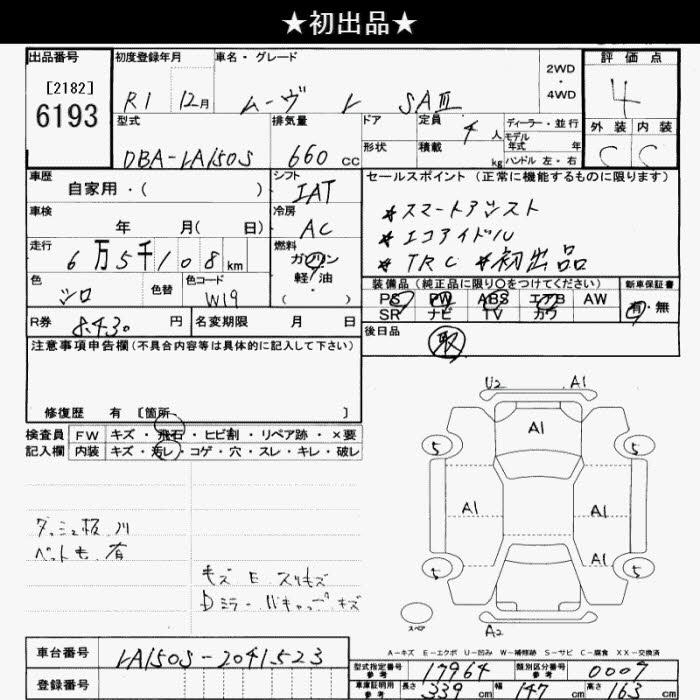 ★初出品★
出品番号
[2182]
6193
初度登録年月
R1 12月
車名・グレード
ムーヴ L SAⅢ
2WD
・
4WD
評価点
4
型式
DBA-LA150S
排気量
660 cc
ドア
形状
定員 4人
積載 kg
ディーラー・並行
モデル
年式 年
ハンドル 左・右
外装 内装
C C
車歴
自家用・( )
シフト
IAT
車検
年 月( 日)
冷房
AC
走行
6万5千108km
燃料
ガソリン
軽・油
・( )
色
シロ
色替
色コード
W19
R券 8.4.30 円
名変期限 月 日
セールスポイント(正常に機能するものに限ります)
*スマートアシスト
*エコアイドル
*TRC *初出品
装備品(純正品に限り○をつけてください)
PS PW ABS エアB AW
SR ナビ TV カワ
新車保証書
有・無
後日品
取
注意事項申告欄(不具合内容等は具体的に記入して下さい)
修復歴 有 [箇所 ]
検査員
記入欄
FW キズ・飛石・ヒビ割・リペア跡・×要
内装 キズ・汚レ・コゲ・穴・スレ・キレ・破レ
キズ E スリキズ
U2 A1
A1
5 5
A1 A1
A1
5 5
スペア
A2
A-キズ E-エクボ U-凹み W-補修跡 S-サビ C-腐食 XX-交換済
車台番号
LA150S-2041523
登録番号
型式指定番号
参考
17964
類別区分番号
参考
0007
車庫証明用
参考
長さ 339 cm 幅 147 cm 高さ 163 cm